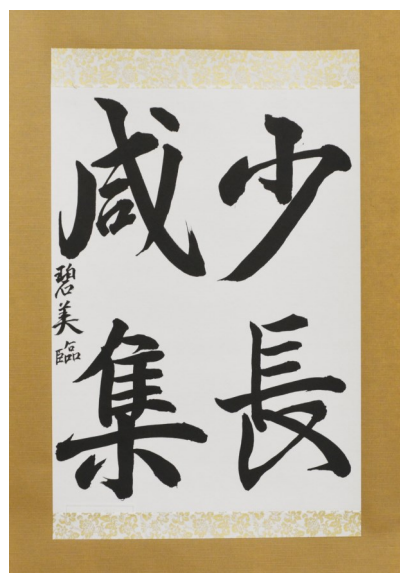 少長
咸集
碧美臨